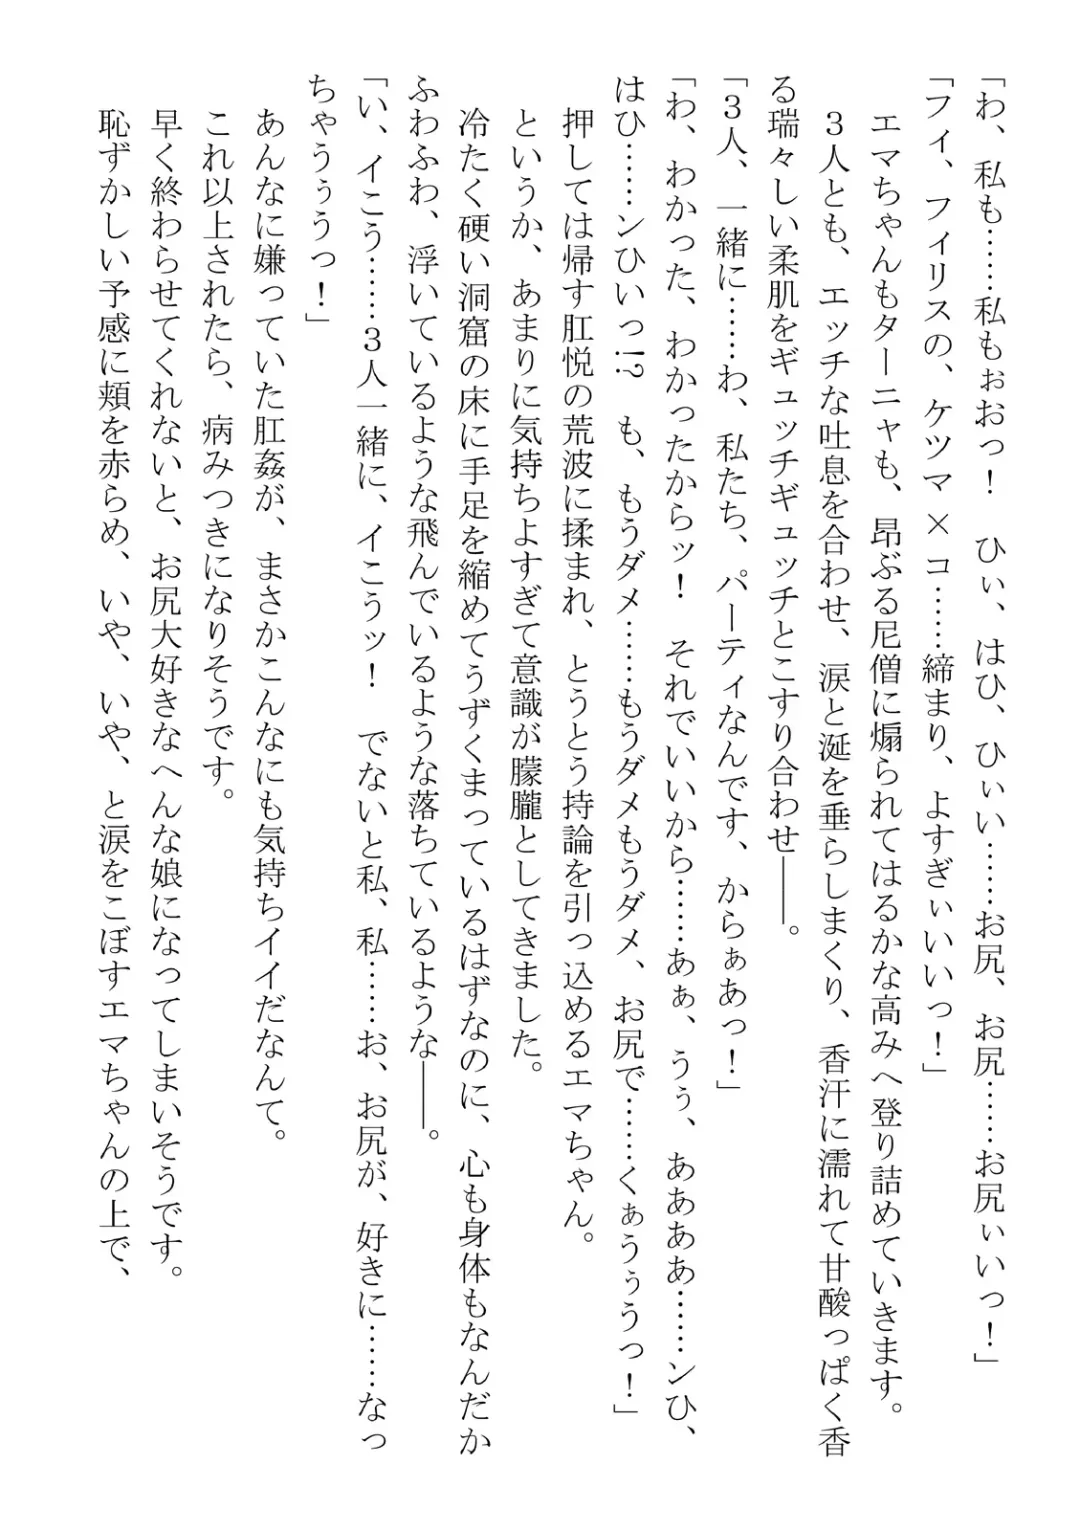 「わ、私も……私もぉおっ！　ひぃ、はひ、ひぃい……お尻、お尻……お尻ぃいっ！」
「フィ、フィリスの、ケツマ×コ……締まり、よすぎぃいいっ！」
　エマちゃんもターニャも、昂ぶる尼僧に煽られてはるかな高みへ登り詰めていきます。
　３人とも、エッチな吐息を合わせ、涙と涎を垂らしまくり、香汗に濡れて甘酸っぱく香
る瑞々しい柔肌をギュッチギュッチとこすり合わせ――。
「３人、一緒に……わ、私たち、パーティなんです、からぁあっ！」
「わ、わかった、わかったからッ！　それでいいから……あぁ、うぅ、ああああ……ンひ、
はひ……ンひいっ!?　も、もうダメ……もうダメもうダメ、お尻で……くぁうぅうっ！」
　押しては帰す肛悦の荒波に揉まれ、とうとう持論を引っ込めるエマちゃん。
　というか、あまりに気持ちよすぎて意識が朦朧としてきました。
　冷たく硬い洞窟の床に手足を縮めてうずくまっているはずなのに、心も身体もなんだか
ふわふわ、浮いているような飛んでいるような落ちているような――。
「い、イこう……３人一緒に、イこうッ！　でないと私、私……お、お尻が、好きに……なっ
ちゃうぅうっ！」
　あんなに嫌っていた肛姦が、まさかこんなにも気持ちイイだなんて。
　これ以上されたら、病みつきになりそうです。
　早く終わらせてくれないと、お尻大好きなへんな娘になってしまいそうです。
　恥ずかしい予感に頬を赤らめ、いや、いや、と涙をこぼすエマちゃんの上で、